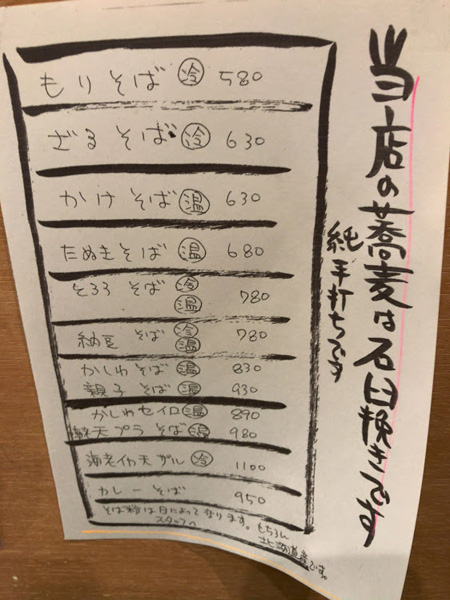 当店の蕎麦は石臼挽きです
純手打ちです
もりそば 冷 580
ざるそば 冷 630
かけそば 温 630
たぬきそば 温 680
とろろ そば 冷 温 780
納豆 そば 冷 温 780
かしわそば 温 830
親子 そば 温 930
かしわセイロ 温 890
天プラそば 温 980
海老イカ天ザル 冷 1100
カレーそば 950
そば粉は日によって なります。
スタッフへ
もちろん
北海道産です。